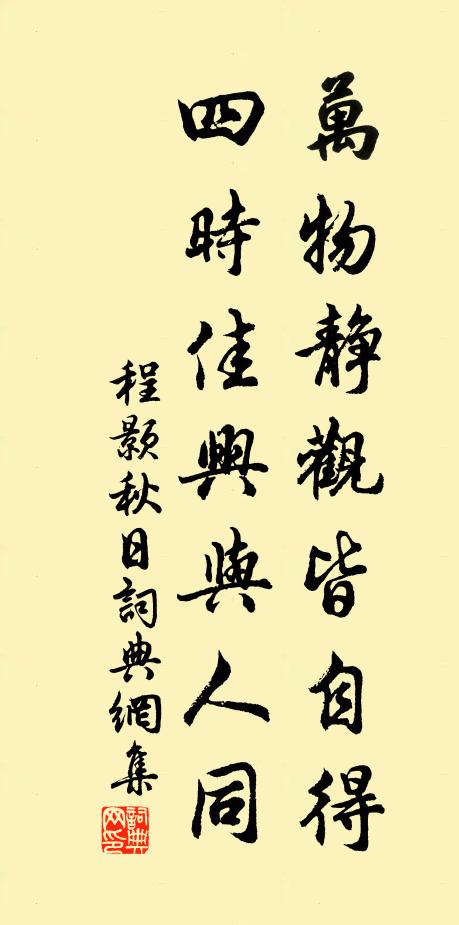 萬物靜觀皆自得
四時佳興與人同
程顥秋日詞典網集
詞典网印